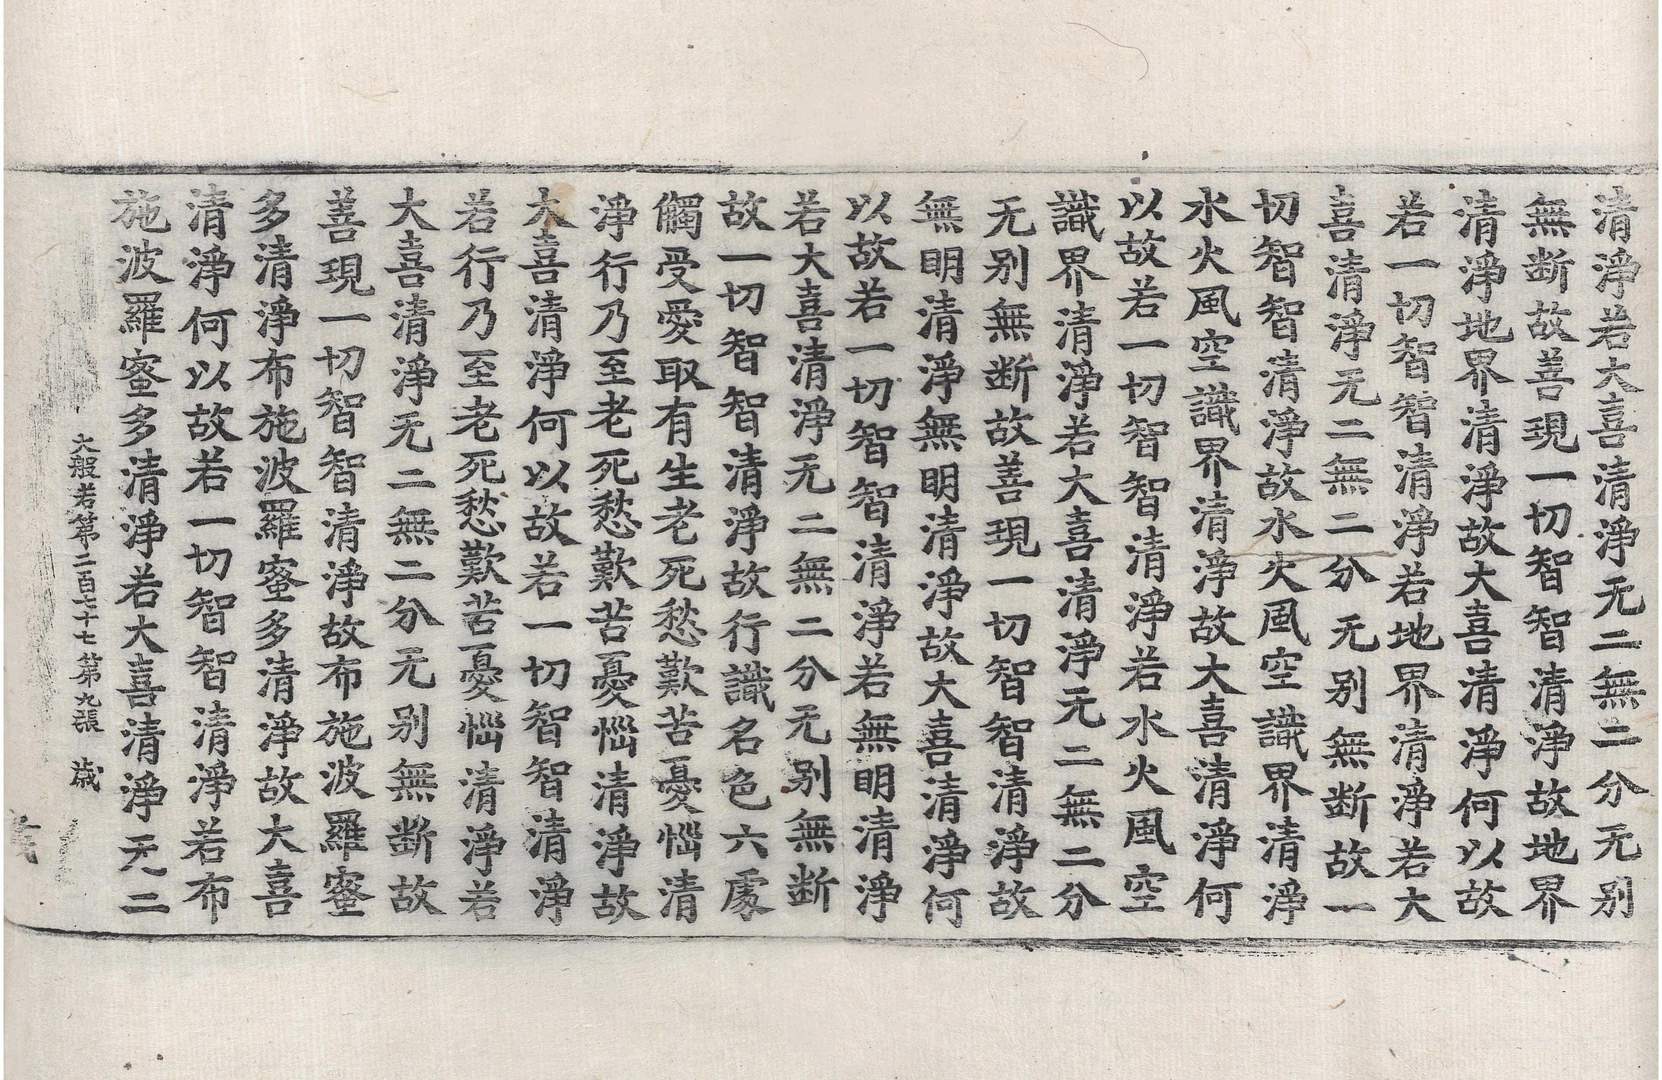 清淨若大喜清淨无二無二分无别
無断故善現一切智智清淨故地界
清淨地界清淨故大喜清淨何以故
若一切智智清淨若地界清淨若大
喜清淨无二無二分无别無断故一
切智智清淨故水火風空識界清淨
水火風空識界清淨故大喜清淨何
以故若一切智智清淨若水火風空
識界清淨若大喜清淨无二無二分
无别無断故善現一切智智清淨故
無明清淨無明清淨故大喜清淨何
以故若一切智智清淨若無明清淨
若大喜清淨无二無二分无别無断
故一切智智清淨故行識名色六處
觸受愛取有生老死愁歎苦憂惱清
淨行乃至老死愁歎苦憂惱清淨故
大喜清淨何以故若一切智智清淨
若行乃至老死愁歎苦憂惱清淨若
大喜清淨无二無二分无别無断故
善現一切智智清淨故布施波羅蜜
多清淨布施波羅蜜多清淨故大喜
清淨何以故若一切智智清淨若布
施波羅蜜多清淨若大喜清淨无二
大般若第二百七十七 第九張 歳